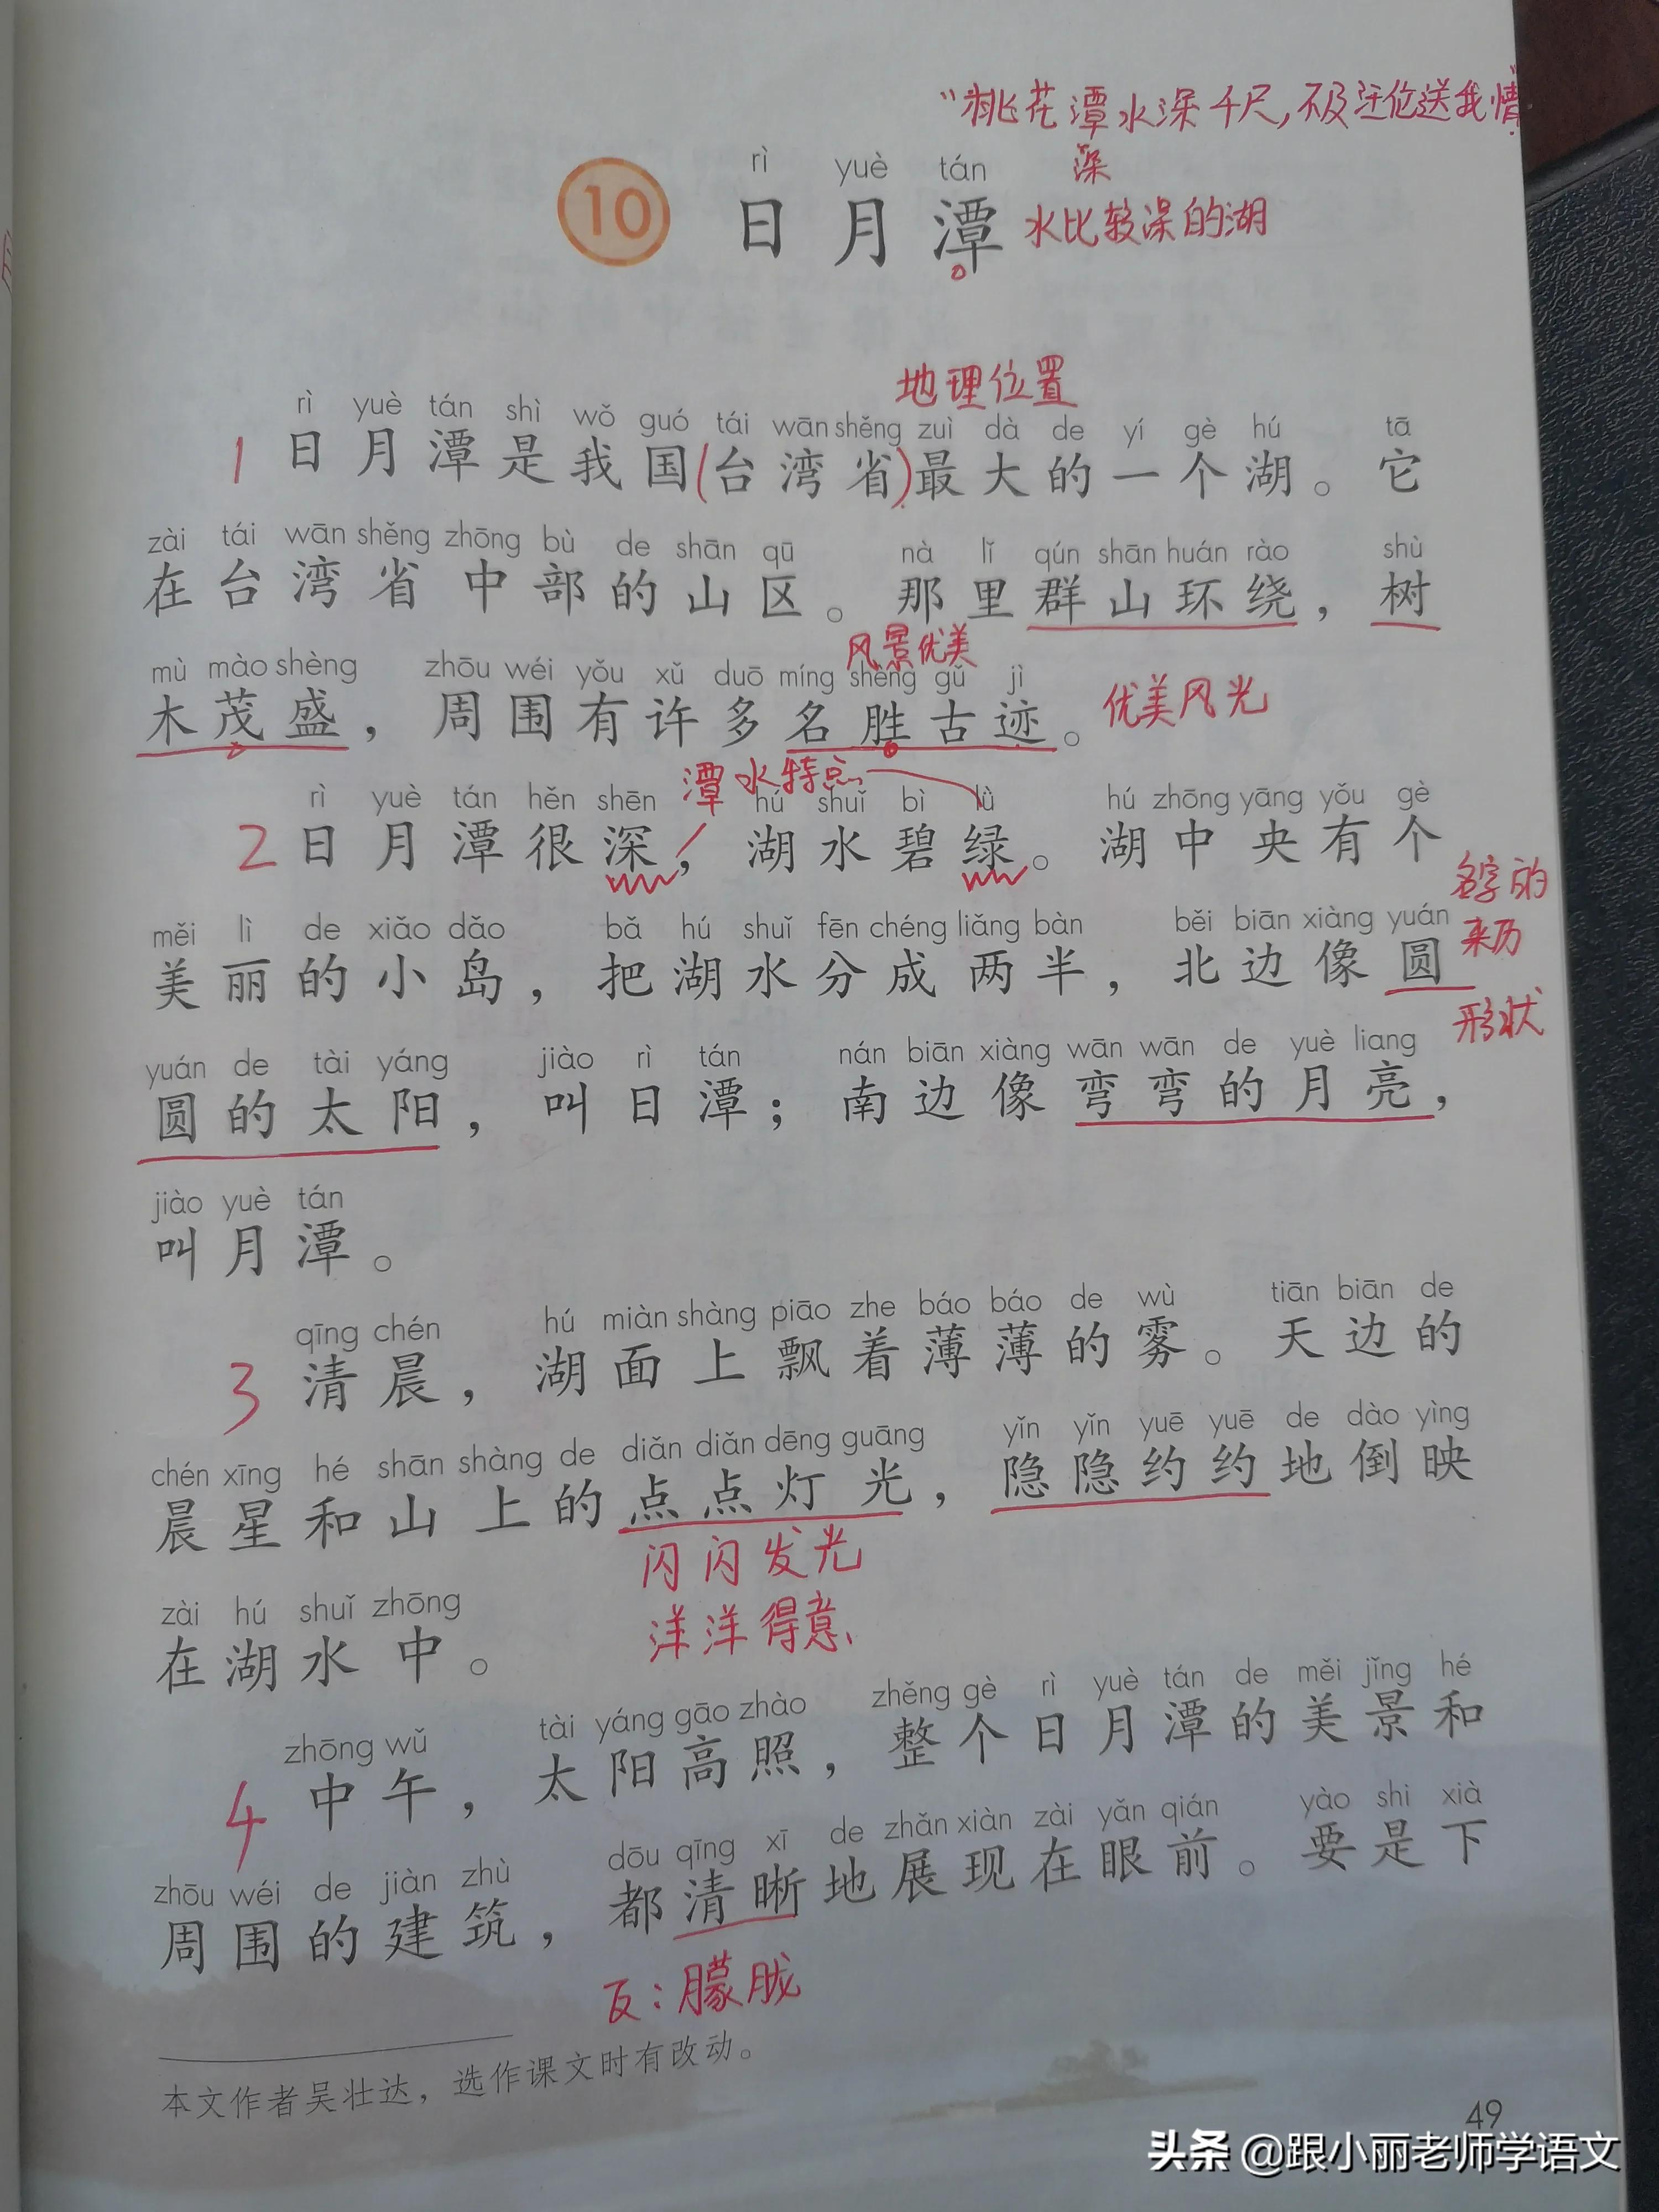 “桃花潭水深千尺，不及汪伦送我情”
rì yuè tán 深
10 日月潭 水比较深的湖
地理位置
rì yuè tán shì wǒ guó tái wān shěng zuì dà de yí gè hú tā
1 日月潭是我国(台湾省)最大的一个湖。它
zài tái wān shěng zhōng bù de shān qū nà lǐ qún shān huán rào shù
在台湾省中部的山区。那里群山环绕，树
风景优美
mù mào shèng zhōu wéi yǒu xǔ duō míng shèng gǔ jì
木茂盛，周围有许多名胜古迹。优美风光
潭水特点
rì yuè tán hěn shēn hú shuǐ bì lǜ hú zhōng yāng yǒu gè
2 日月潭很深，湖水碧绿。湖中央有个
名字的
来历
měi lì de xiǎo dǎo bǎ hú shuǐ fēn chéng liǎng bàn běi biān xiàng yuán
美丽的小岛，把湖水分成两半，北边像圆
形状
yuán de tài yáng jiào rì tán nán biān xiàng wān wān de yuè liang
圆的太阳，叫日潭；南边像弯弯的月亮，
jiào yuè tán
叫月潭。
qīng chén hú miàn shàng piāo zhe báo báo de wù tiān biān de
3 清晨，湖面上飘着薄薄的雾。天边的
chén xīng hé shān shàng de diǎn diǎn dēng guāng yǐn yǐn yuē yuē de dào yìng
晨星和山上的点点灯光，隐隐约约地倒映
闪闪发光
zài hú shuǐ zhōng
在湖水中。
洋洋得意
zhōng wǔ tài yáng gāo zhào zhěng gè rì yuè tán de měi jǐng hé
4 中午，太阳高照，整个日月潭的美景和
zhōu wéi de jiàn zhù dōu qīng xī de zhǎn xiàn zài yǎn qián yào shi xià
周围的建筑，都清晰地展现在眼前。要是下
反：朦胧
本文作者吴壮达，选作课文时有改动。
49
头条 @跟小丽老师学语文